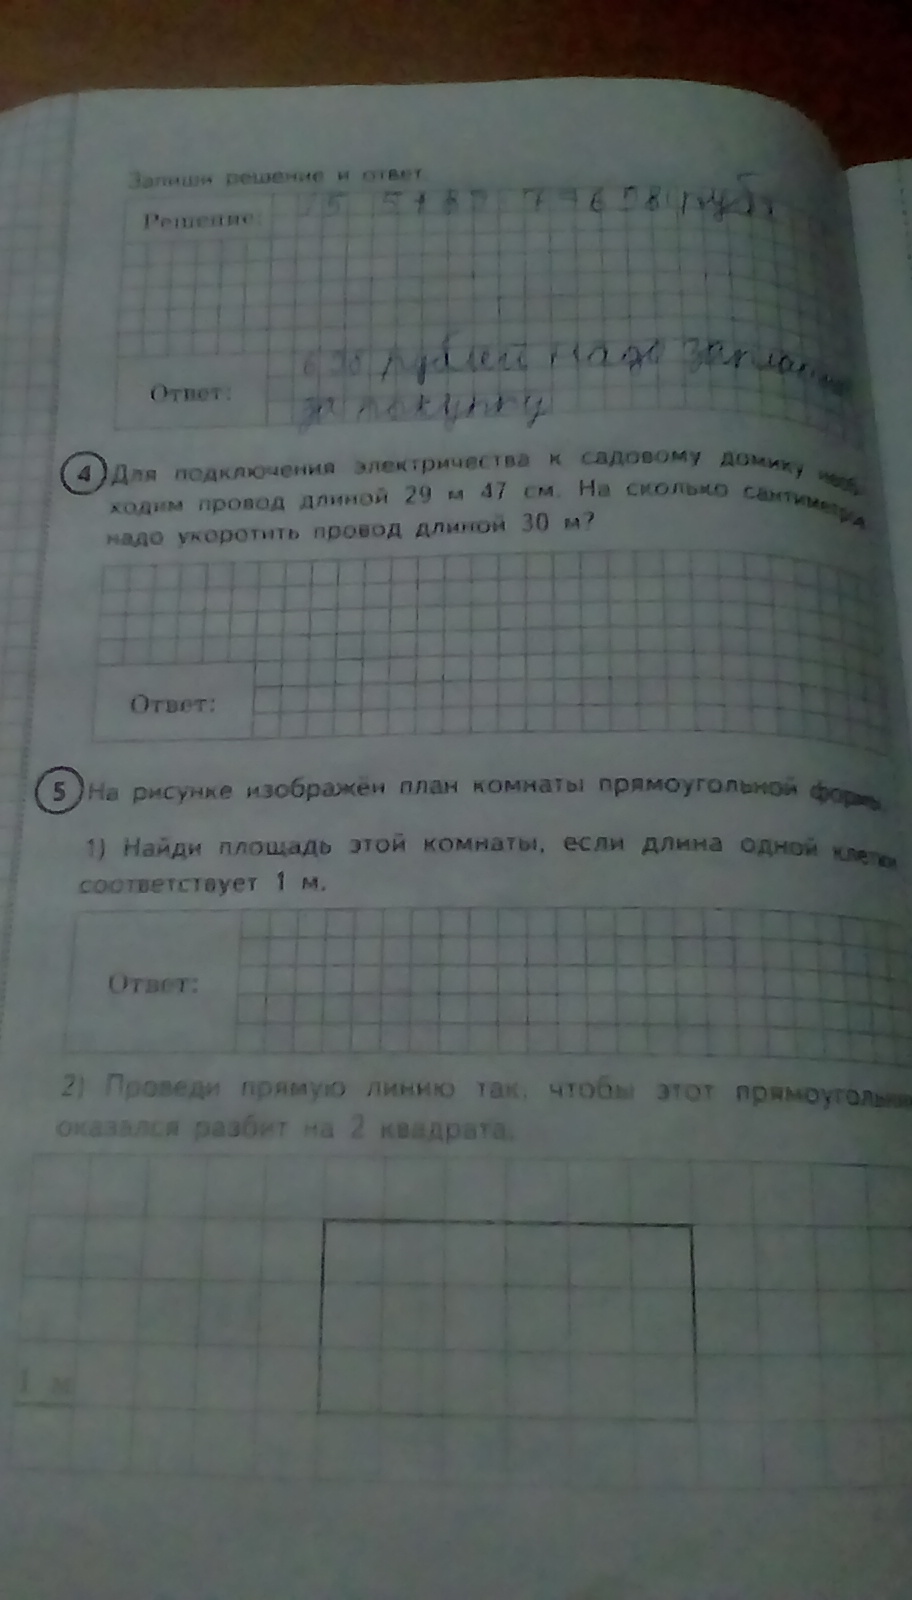 Запиши решение и ответ.
Решение:
рублей надо
Ответ:
за покупку
4 Для подключения электричества к садовому домику необ-
ходим провод длиной 29 м 47 см. На сколько сантиметров
надо укоротить провод длиной 30 м?
Ответ:
5 На рисунке изображён план комнаты прямоугольной формы.
1) Найди площадь этой комнаты, если длина одной клетки
соответствует 1 м.
Ответ:
2) Проведи прямую линию так, чтобы этот прямоугольник
оказался разбит на 2 квадрата.
1 м